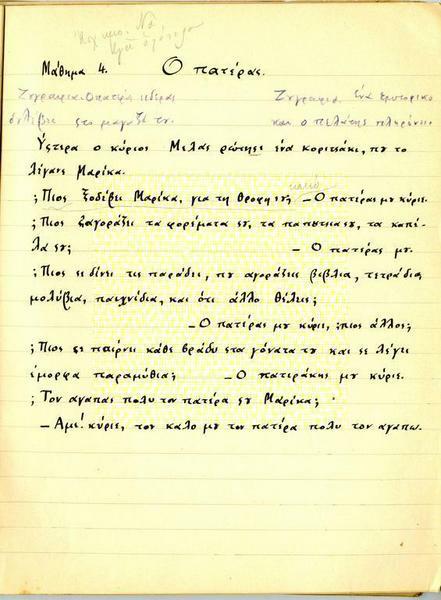 Μάθημα 4. Ο πατέρας.
Ζυγραφιά. Ο πατέρα
δυλέβιι στο μαγαζί τυ.
Ζυγραφιά. ένα εμπορικο
και ο πελάτης πληρώνι.
Ύςτερα ο κύριος Μελας ρώτησε ένα κοριτσάκι, πυ το
λέγανε Μαρίκα.
; Πιος ξοδέβι Μαρίκα, για τη θροφη συ; — Ο πατέρας μυ κύριε.
; Πιος ςαγοράζι τα φορέματα συ, τα παπυτσια συ, τα καπέ-
λα συ; — Ο πατέρας μυ.
; Πιος σε δίνει τις παράδες, πυ αγοράζεις βιβλία, τετράδια,
μολύβια, παιχνίδια, και ότι άλλο θέλεις;
— Ο πατέρας μυ κύριε, ;πιος άλλος;
; Πιος σε παίρνει κάθε βράδυ στα γόνατα τυ και σε λέγει
έμορφα παραμύθια; — Ο πατεράκης μυ κύριε.
; Τον αγαπας πολυ τον πατέρα συ Μαρίκα;
— Αμέ! κύριε, τον καλο μυ τον πατέρα πολυ τον αγαπω.